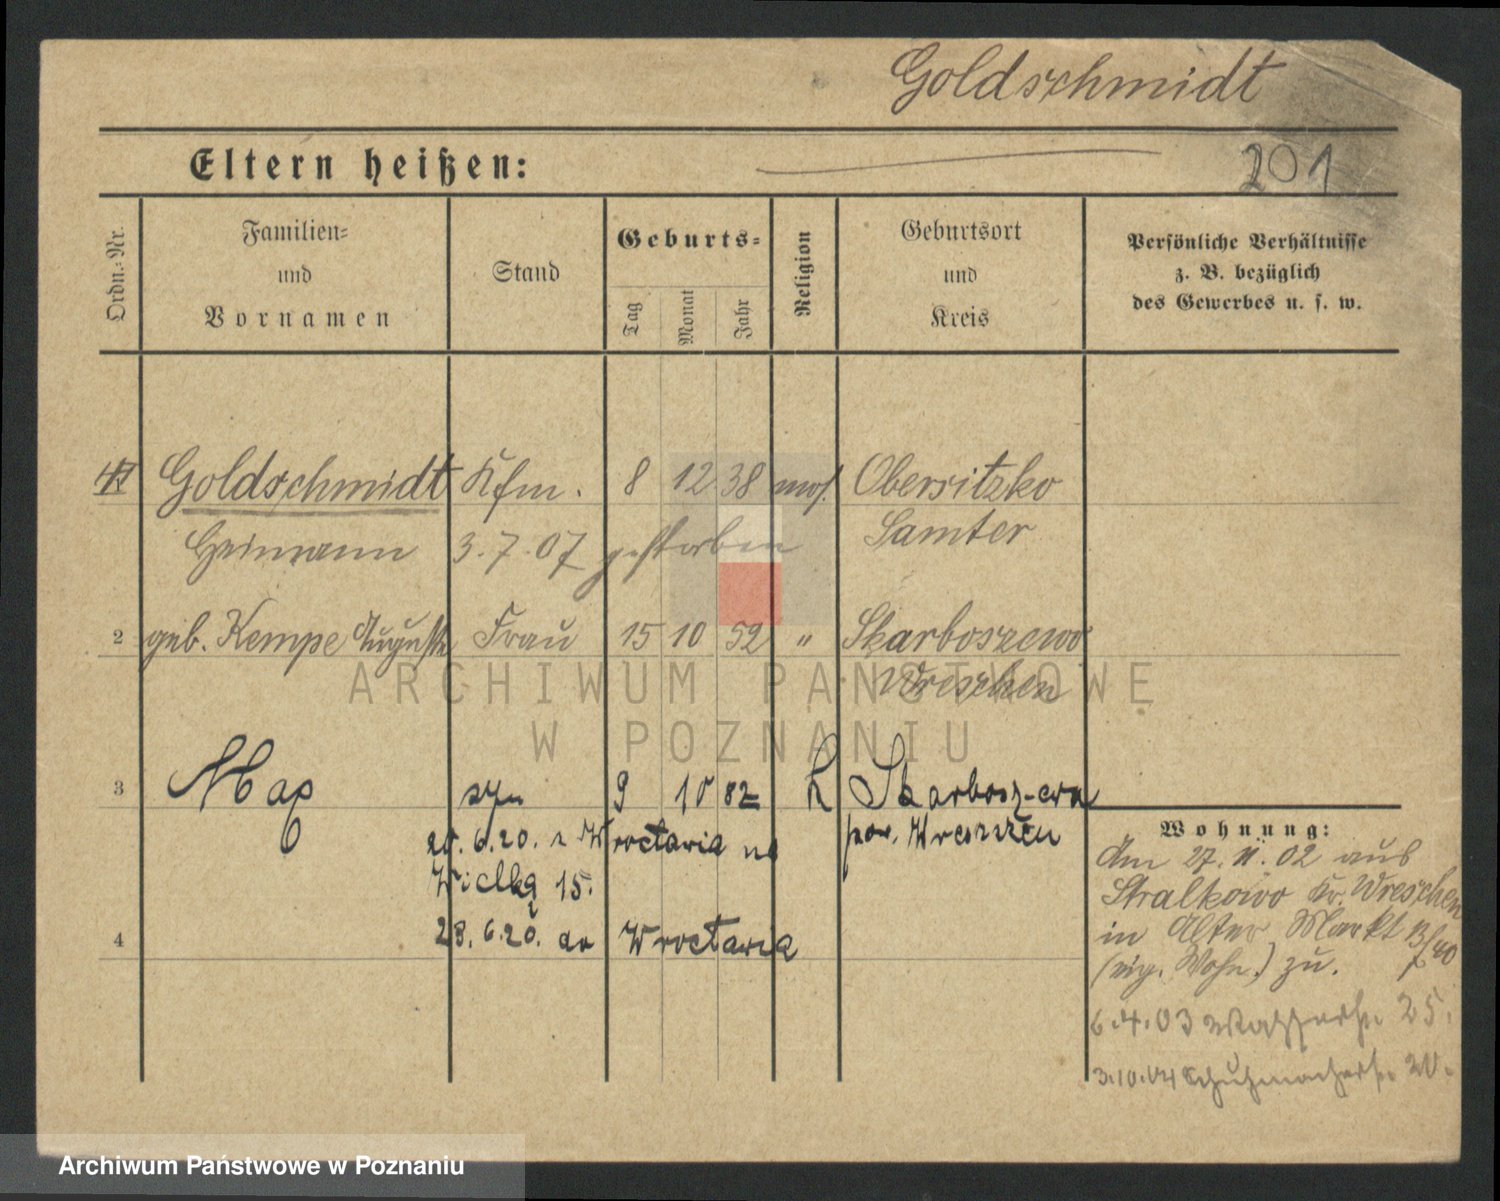 Goldschmidt
Eltern heißen:
201
Ordn.-Nr.
Familien-
und
Vornamen
Stand
Geburts-
Tag
Monat
Jahr
Religion
Geburtsort
und
Kreis
Persönliche Verhältnisse
z. B. bezüglich
des Gewerbes u. s. w.
Goldschmidt Kfm. 8 12 38 mos. Obersitzko
Heimann 3.7.07 gestorben Samter
2 geb. Kempe Auguste Frau 15 10 52 " Skarboszewo
Wreschen
ARCHIWUM PAŃSTWOWE
W POZNANIU
3 Max syn 9 10 82 Skarboszewa
pow. Wreszen
6.20. z Wrocławia na
Wielką 15.
4 23.6.20. do Wrocławia
Wohnung:
Am 27. 11. 02 aus
Stralkowo Kr. Wreschen
in Alter Markt
(eig. Wohn.) zu.
6.4.03 Wasserstr. 25.
3.10.04 Schuhmacherstr. 20.
Archiwum Państwowe w Poznaniu